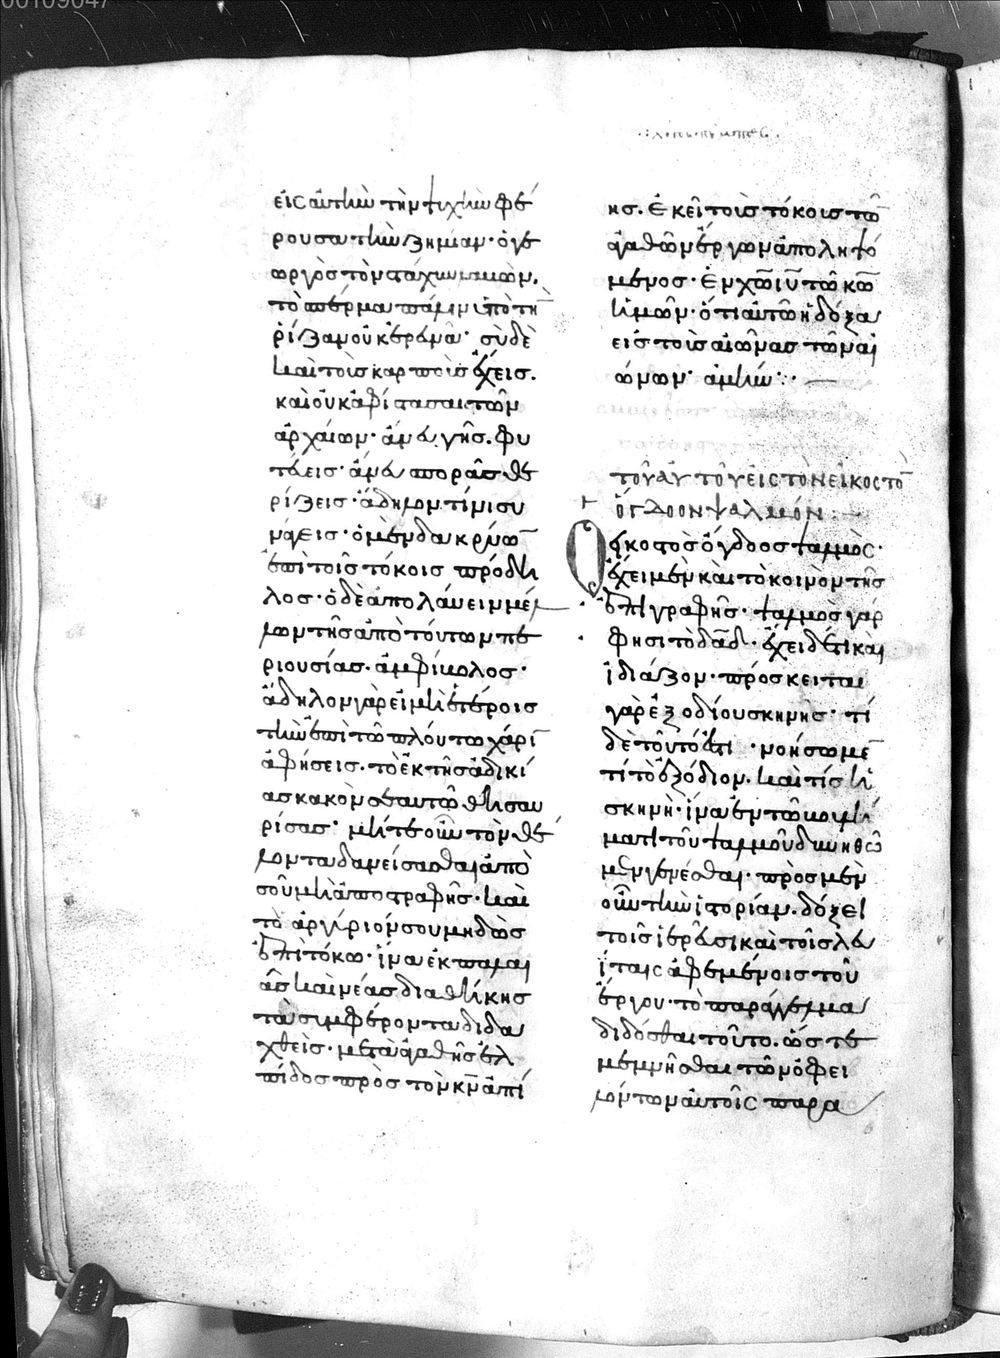 εἰς αὐτὴν τὴν ψυχὴν φέ
ρουσαν τὴν ζημίαν· ὁ γε
ωργὸς τὸν στάχυν λαβὼν,
τὸ σπέρμα πάλιν ὑπὸ τὴν
ῥίζαν οὐκ ἐρευνᾶ· σὺ δὲ
καὶ τοὺς καρποὺς ἔχεις.
καὶ οὐκ ἀφίστασαι τῶν
ἀρχαίων· ἄνευ γῆς. φυ
τεύεις· ἄνευ σπορᾶς θε
ρίζεις· ἄδηλον τίνι συ
νάγεις· ὁ μὲν δακρύων
ἐπὶ τοῖς τόκοις πρόδη
λος· ὁ δὲ ἀπολαύειν μέλ
λων τῆς ἀπὸ τούτων πε
ριουσίας. ἀμφίβολος·
ἄδηλον γὰρ εἰ μὴ ἑτέροις
τὴν ἐπὶ τῶ πλούτω χάριν
ἀφήσεις. τὸ ἐκ τῆς ἀδικί
ας κακὸν σεαυτῶ θησαυ
ρίσας· μήτε οὖν τὸν θέ
λοντα δανείσασθαι ἀπὸ
σοῦ μὴ ἀποστραφῆς· καὶ
τὸ ἀργύριόν σου μὴ δῶς
ἐπὶ τόκω· ἵνα ἐκ παλαι
ᾶς καὶ νέας διαθήκης
τὰ συμφέροντα διδα
χθεὶς· μετὰ ἀγαθῆς ἐλ
πίδος πρὸς τὸν κν ἀπί
ης. ἐκεῖ τοὺς τόκους τῶν
ἀγαθῶν ἔργων ἀποληψό
μενος· ἐν χω ιυ τῶ κω
ἡμῶν· ὅτι αὐτῶ ἡ δόξα
εἰς τοὺς αἰῶνας τῶν αἰ
ώνων· ἀμήν:
τοῦ αὐτοῦ εἰς τὸν εἰκοστὸν
ὄγδοον ψαλμόν:
Ὁ εἰκοστὸς ὄγδοος ψαλμὸς·
ἔχει μὲν καὶ τὸ κοινὸν τῆς
ἐπιγραφῆς· ψαλμὸς γάρ
φησι τὸ δαδ· ἔχει δέ τι καὶ
ἰδιάζον· πρόσκειται
γὰρ ἐξοδίου σκηνῆς· τί
δὲ τοῦτό ἐστι· νοήσωμεν
τί τὸ ἐξόδιον. καὶ τίς ἡ
σκηνὴ· ἵνα ἐν τῶ νοή
ματι τοῦ ψαλμοῦ δυνηθῶ
μεν γενέσθαι· πρὸς μὲν
οὖν τὴν ἱστορίαν. δόξει
τοῖς ἱερεῦσι καὶ τοῖς λευ
ίταις ἀφεμένοις τοῦ
ἔργου· τὸ παράγγελμα
δίδοσθαι τοῦτο. ὥστε
μεμνῆσθαι τῶν ὀφει
λόντων αὐτοῖς παρα